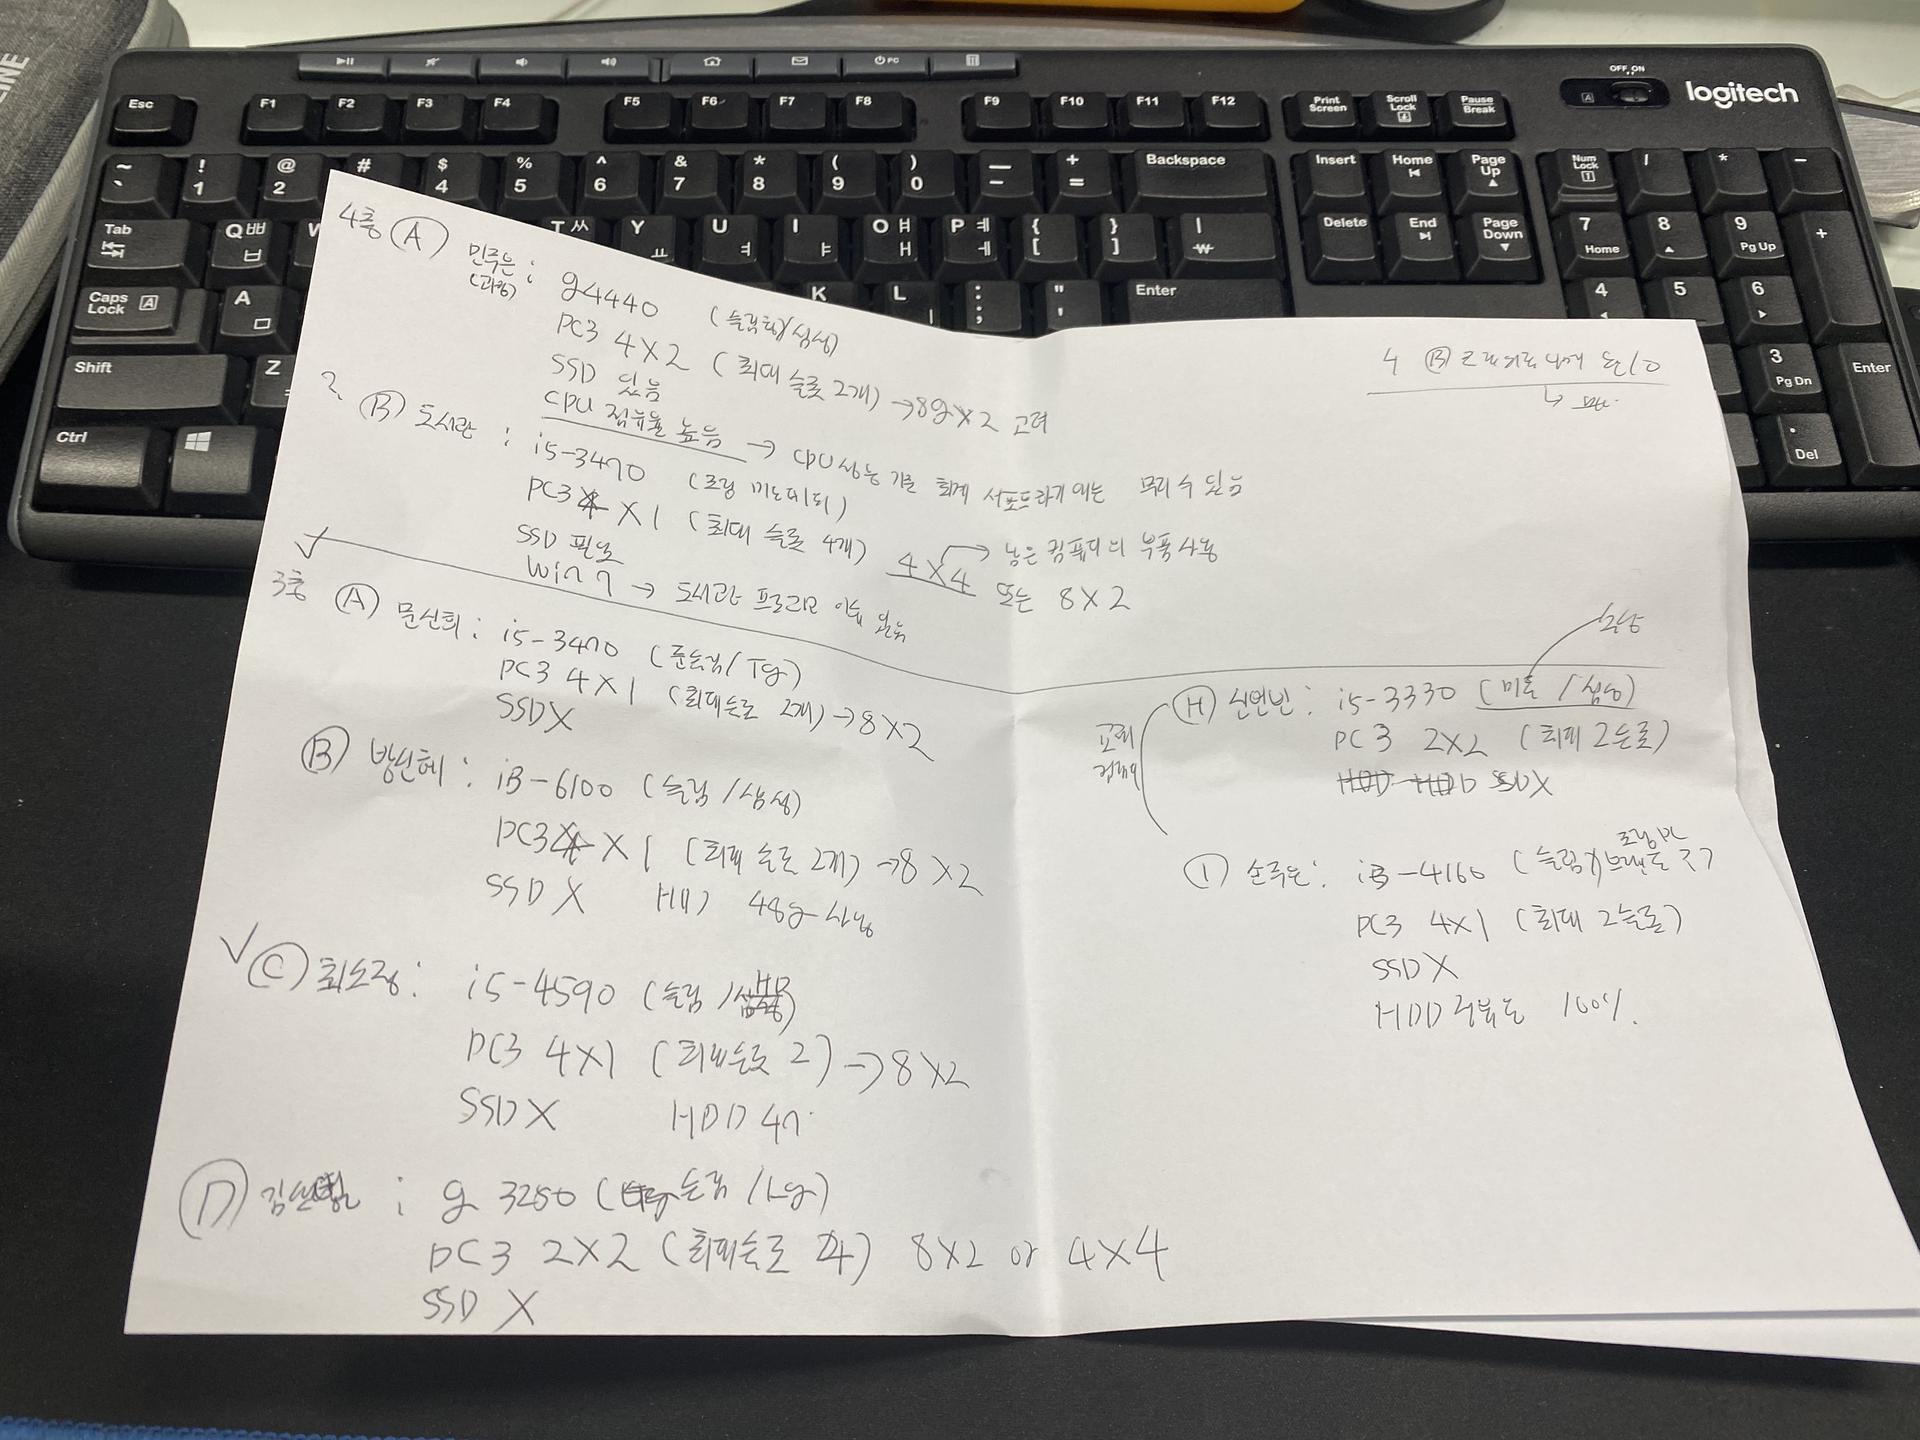 logitech
OFF ON
Esc F1 F2 F3 F4 F5 F6 F7 F8 F9 F10 F11 F12 Print Screen Scroll Lock Pause Break
~ ` ! 1 @ 2 # $ 4 % 5 ^ 6 & 7 * 8 ( 9 ) 0 — - + = Backspace Insert Home Page Up Num Lock / * -
Tab Q ㅃ ㅂ T ㅆ Y ㅛ U ㅕ I ㅑ O ㅒ ㅐ P ㅖ ㅔ { [ } ] | ₩ Delete End Page Down 7 Home 8 9 Pg Up +
Caps Lock A ㅁ K L : ; " ' Enter 4 5 6
Shift Z 3 Pg Dn Enter
Ctrl . Del
4층 Ⓐ 민주은 : g4440 (슬림형/삼성)
(과장)
PC3 4X2 (최대 슬롯 2개) → 8g X 2 고려
SSD 있음
CPU 점유율 높음 → CPU 성능 기준 회계 서포트하기에는 무리수 있음
Ⓑ 도서관 : i5-3470 (조립 미들타워)
PC3 4 X 1 (최대 슬롯 4개) 4X4 → 남은 컴퓨터의 부품 사용
또는 8X2
SSD 필요
Win 7 → 도서관 프로그램 이슈 있음
3층 Ⓐ 문선희 : i5-3470 (준슬림/Tg)
PC3 4X1 (최대슬롯 2개) → 8X2
SSD X
Ⓑ 방선혜 : i3-6100 (슬림/삼성)
PC3 4 X 1 (최대 슬롯 2개) → 8X2
SSD X HDD 48g 사용
Ⓒ 최소정 : i5-4590 (슬림/HP)
PC3 4X1 (최대슬롯 2) → 8X2
SSD X HDD 47
Ⓓ : g 3250 (슬림/Lg)
PC3 2X2 (최대슬롯 4) 8X2 or 4X4
SSD X
4 Ⓑ
Ⓗ 신연빈 : i5-3330 (미들/삼성)
PC3 2X2 (최대 2슬롯)
SSD X
Ⓘ 손주은 : i3-4160 (슬림)
조립PC
PC3 4X1 (최대 2슬롯)
SSD X
HDD 점유율 100%.